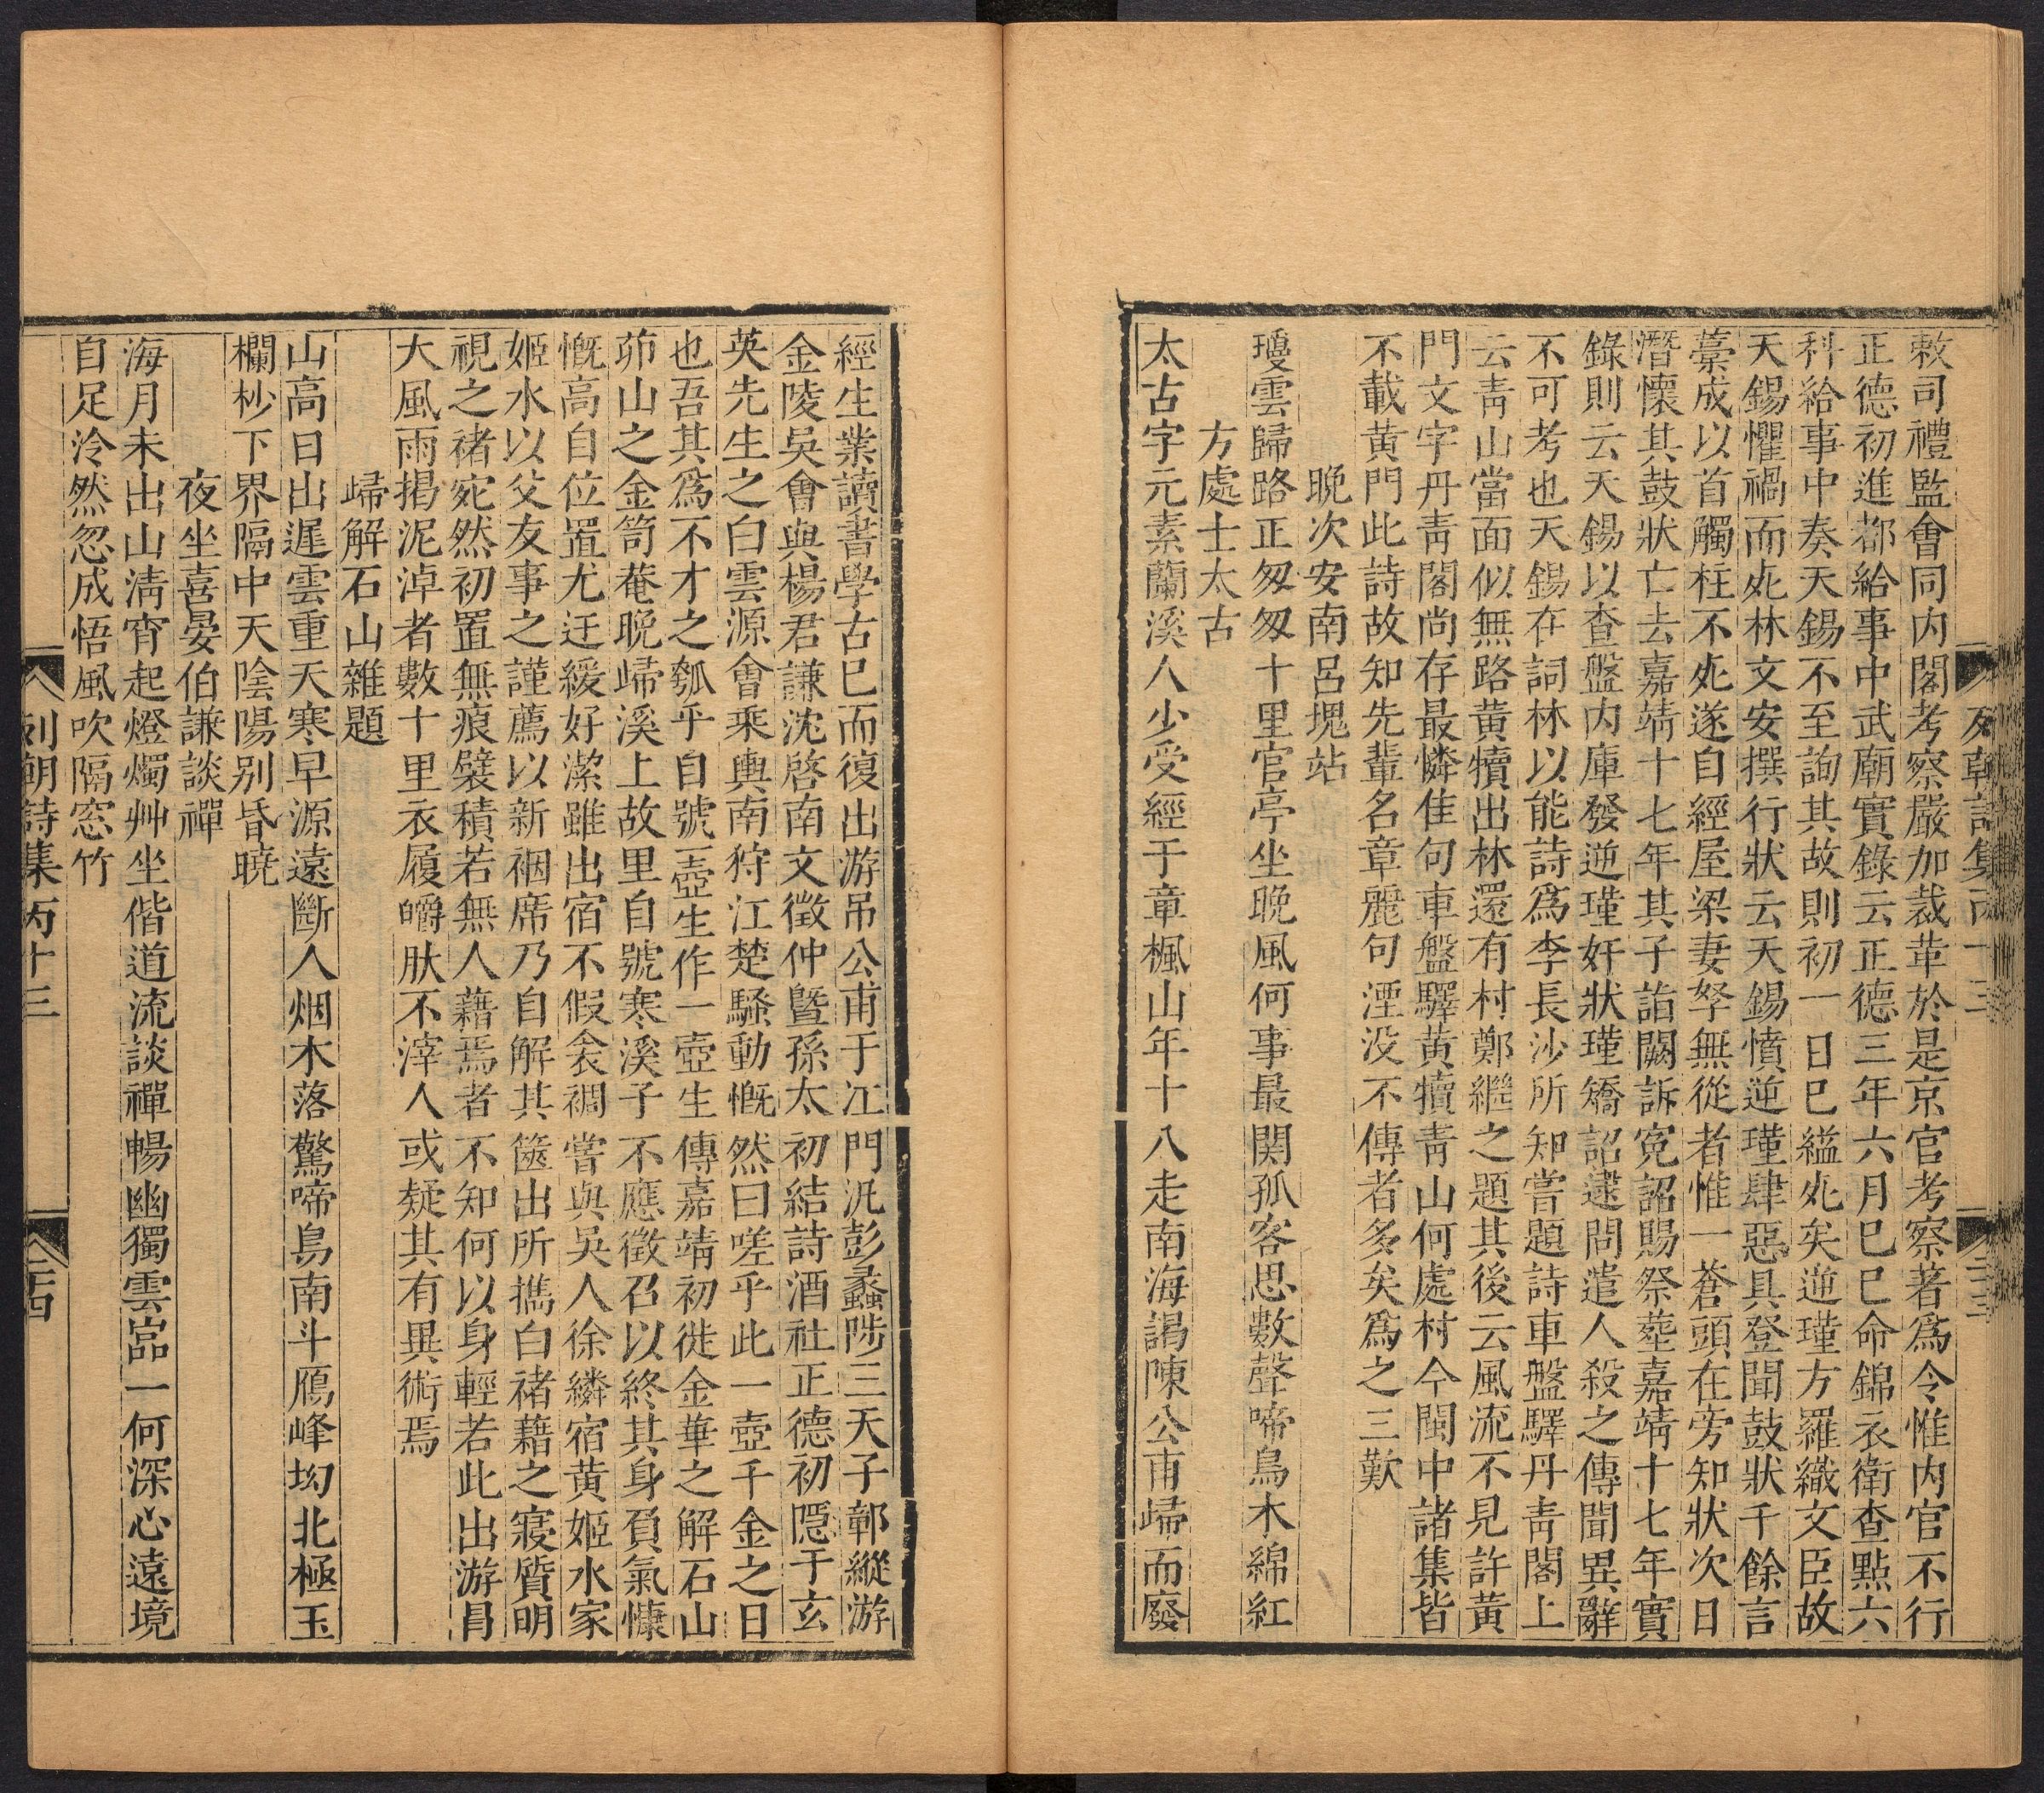 敕司禮監會同內閣考察嚴加裁革於是京官考察著爲令惟內官不行
正德初進都給事中武廟實錄云正德三年六月己巳命錦衣衛查點六
科給事中奏天錫不至詢其故則初一日已縊死矣逆瑾方羅織文臣故
天錫懼禍而死林文安撰行狀云天錫憤逆瑾肆惡具登聞鼓狀千餘言
藁成以首觸柱不死遂自經屋梁妻孥無從者惟一蒼頭在旁知狀次日
潛懷其鼓狀亡去嘉靖十七年其子詣闕訴寃詔賜祭葬嘉靖十七年實
錄則云天錫以查盤內庫發逆瑾奸狀瑾矯詔逮問遣人殺之傳聞異辭
不可考也天錫在詞林以能詩爲李長沙所知嘗題詩車盤驛丹靑閣上
云靑山當面似無路黃犢出林還有村鄭繼之題其後云風流不見許黃
門文字丹靑閣尚存最憐佳句車盤驛黃犢靑山何處村今閩中諸集皆
不載黃門此詩故知先輩名章麗句湮没不傳者多矣爲之三歎
晩次安南呂塊站
瓊雲歸路正匆匆十里官亭坐晩風何事最関孤客思數聲啼鳥木綿紅
方處士太古
太古字元素蘭溪人少受經于章楓山年十八走南海謁陳公甫歸而廢
列朝詩集丙十三 二十三
經生業讀書學古已而復出游吊公甫于江門汎彭蠡陟三天子鄣縱游
金陵吳會與楊君謙沈啓南文徵仲曁孫太初結詩酒社正德初隱于玄
英先生之白雲源會乘輿南狩江楚騷動慨然曰嗟乎此一壺千金之日
也吾其爲不才之瓠乎自號一壺生作一壺生傳嘉靖初徙金華之解石山
茆山之金笥菴晩歸溪上故里自號寒溪子不應徵召以終其身負氣慷
慨高自位置尤迂緩好潔雖出宿不假衾裯嘗與吳人徐繗宿黃姬水家
姬水以父友事之謹薦以新裀席乃自解其篋出所擕白禇藉之寢質明
視之禇宛然初置無痕襞積若無人藉焉者不知何以身輕若此出游冐
大風雨揭泥淖者數十里衣履皭肰不滓人或疑其有異術焉
歸解石山雜題
山高日出遲雲重天寒早源遠斷人烟木落驚啼鳥南斗鴈峰坳北極玉
欄杪下界隔中天陰陽別昏曉
夜坐喜晏伯謙談禪
海月未出山淸宵起燈燭艸坐偕道流談禪暢幽獨雲嵓一何深心遠境
自足泠然忽成悟風吹隔窓竹
列朝詩集丙十三 二十四